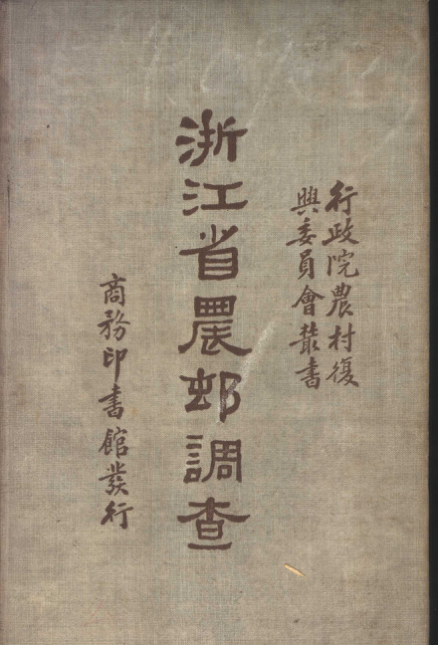 行政院農村復
興委員會叢書
浙江省農邨調查
商務印書館發行